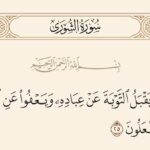 سُورَةُ الشُّورَى
بِسْمِ اللَّهِ الرَّحْمَٰنِ الرَّحِيمِ
يَقْبَلُ ٱلتَّوْبَةَ عَنْ عِبَادِهِۦ وَيَعْفُوا۟ عَنِ
٢٥